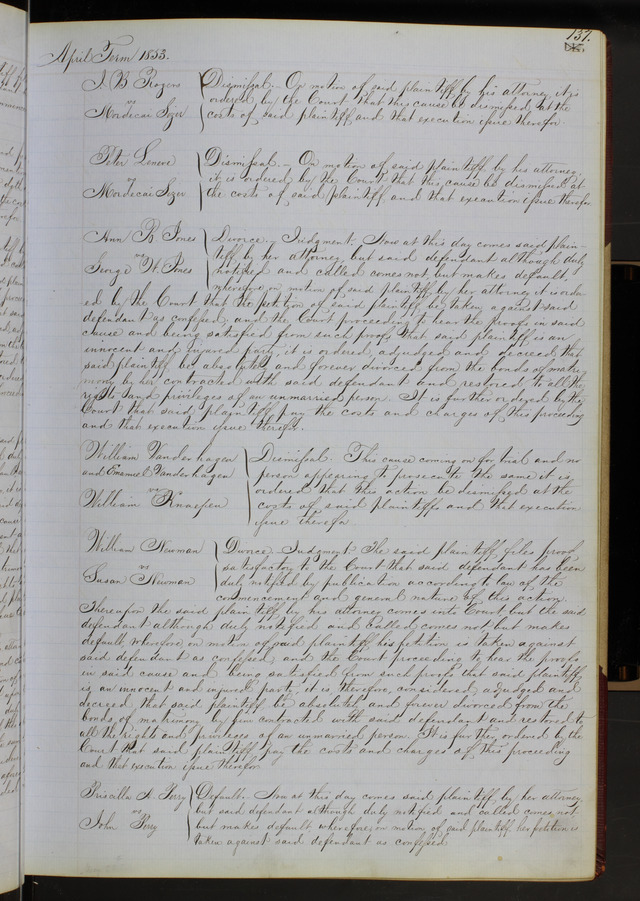 137.
April Term 1883.
J B Rogers
vs
Mordecai
Dismissal. On motion of said plaintiff by his attorney it is
ordered by the Court that this cause be dismissed at the
costs of said plaintiff and that execution issue therefor.
Peter
vs
Mordecai
Dismissal. On motion of said plaintiff by his attorney
it is ordered by the Court that this cause be dismissed at
the costs of said plaintiff and that execution issue therefor
Ann R. Jones
vs
George W. Jones
Divorce. Judgment. Now at this day comes said plain-
tiff by her attorney, but said defendant although duly
notified and called comes not, but makes default,
wherefore, on motion of said plaintiff by her attorney it is order
ed by the Court that the petition of said plaintiff be taken against said
defendant as confessed, and the Court proceeding to hear the proofs in said
cause and being satisfied from such proofs that said plaintiff is an
innocent and injured party, it is ordered, adjudged and decreed that
said plaintiff be absolutely and forever divorced from the bonds of matri-
mony by her contracted with said defendant and restored to all the
rights and privileges of an unmarried person. It is further ordered by the
Court that said plaintiff pay the costs and charges of this proceeding
and that execution issue therefor.
William Vanderhagen
and Emanuel Vanderhagen
vs
William
Dismissal. This cause coming on for trial and no
person appearing to prosecute the same it is
ordered that this action be dismissed at the
costs of said plaintiffs and that execution
issue therefor
William Newman
vs
Susan Newman
Divorce. Judgment. The said plaintiff files proof
satisfactory to the Court that said defendant has been
duly notified by publication according to law of the
commencement and general nature of this action.
Thereupon the said plaintiff by his attorney comes into Court, but the said
defendant although duly notified and called comes not but makes
default, wherefore, on motion of said plaintiff, his petition is taken against
said defendant as confessed, and the Court proceeding to hear the proofs
in said cause and being satisfied from such proofs that said plaintiff
is an innocent and injured party, it is, therefore, considered, adjudged and
decreed, that said plaintiff be absolutely and forever divorced from the
bonds of matrimony by him contracted with said defendant and restored to
all the rights and privileges of an unmarried person. It is further ordered by the
Court that said plaintiff pay the costs and charges of this proceeding
and that execution issue therefor
Priscilla A Perry
vs
John Perry
Default. Now at this day comes said plaintiff, by her attorney
but said defendant although duly notified and called comes not
but makes default, wherefore, on motion of said plaintiff her petition is
taken against said defendant as confessed